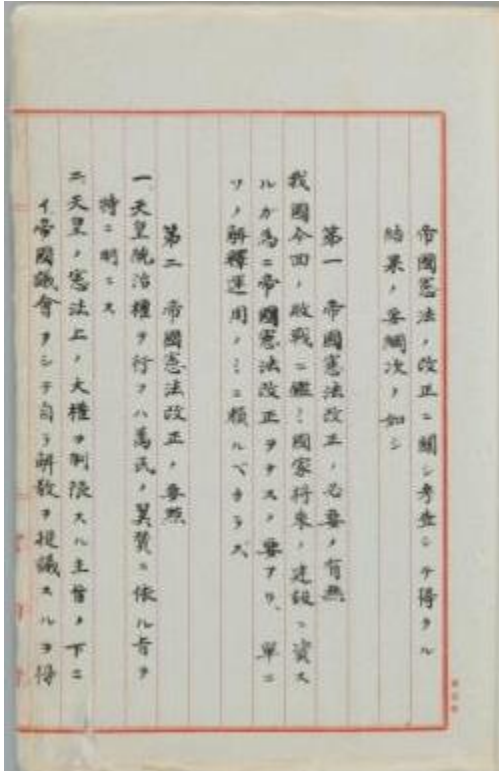 帝國憲法ノ改正ニ關シ考査シテ得タル
結果ノ要綱次ノ如シ
第一 帝國憲法改正ノ必要ノ有無
我國今回ノ敗戰ニ鑑ミ國家將來ノ建設ニ資ス
ルガ為ニ帝國憲法改正ヲナスノ要アリ、單ニ
ソノ解釋運用ノミニ賴ルベカラズ
第二 帝國憲法改正ノ要點
一、天皇統治權ヲ行フハ萬民ノ翼賛ニ依ル旨ヲ
特ニ明ニス
二、天皇ノ憲法上ノ大權ヲ制限スル主旨ノ下ニ
イ帝國議會ヲシテ自ラ解散ヲ提議スルヲ得